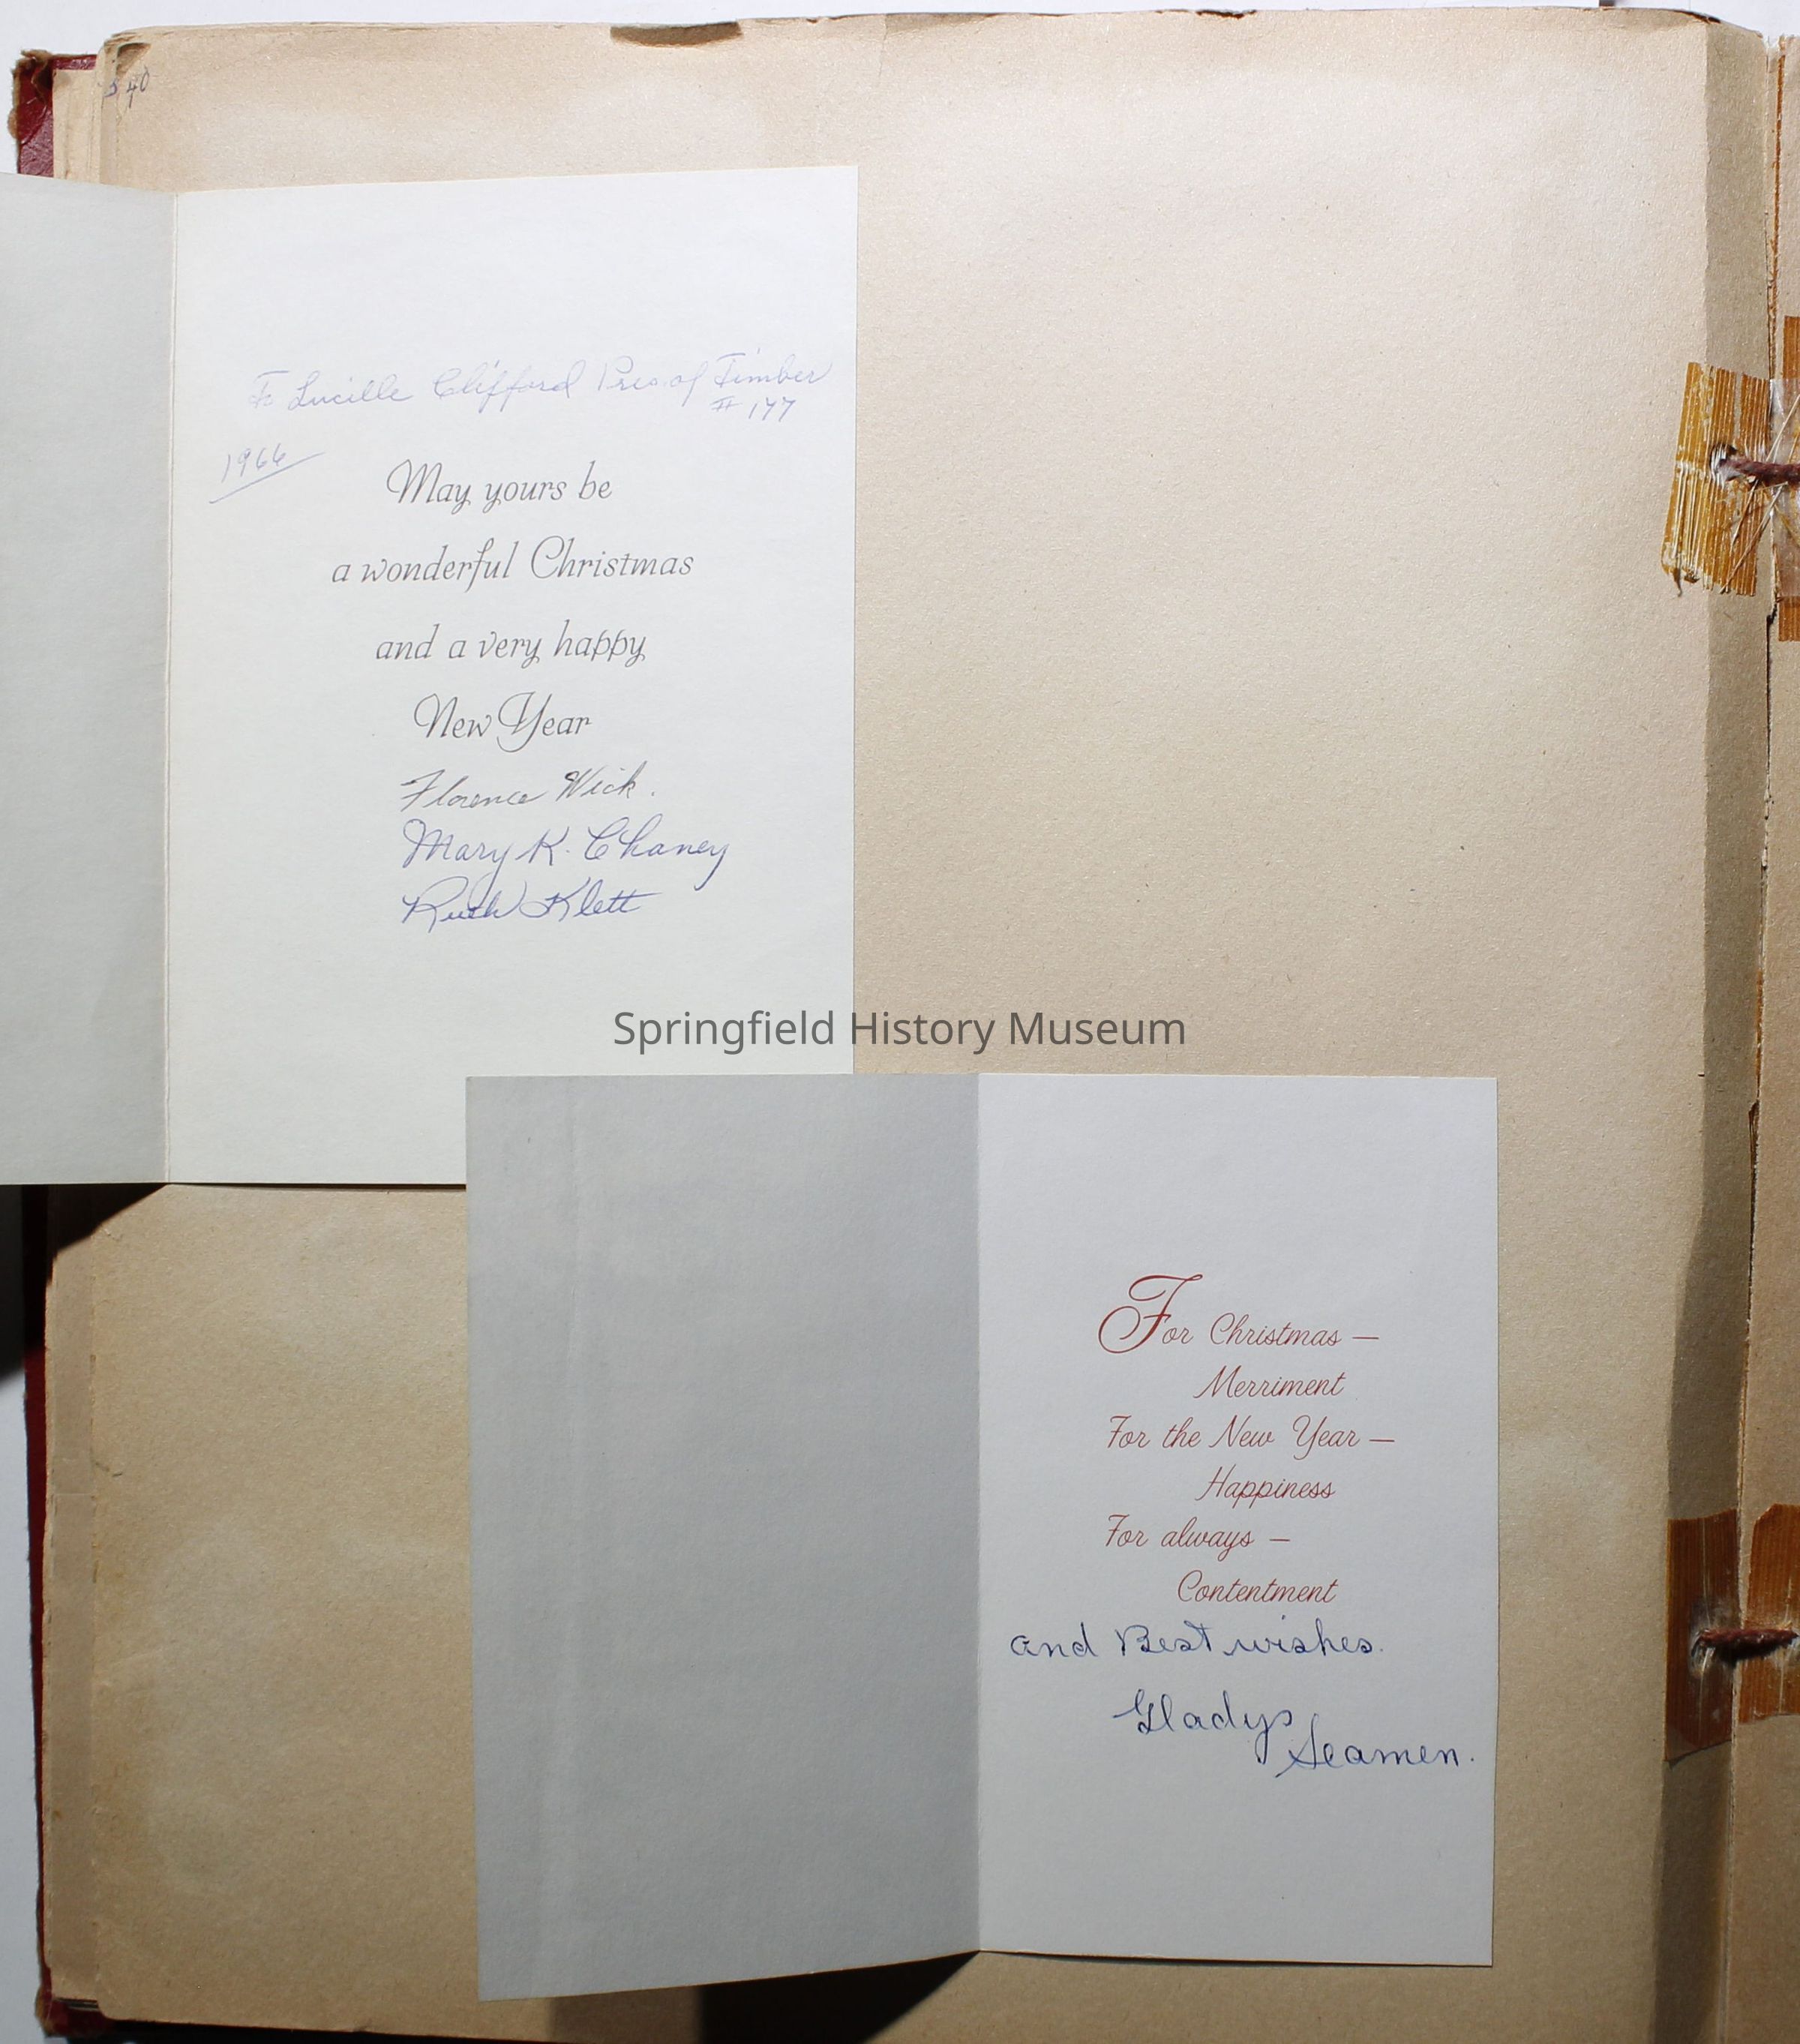 $40
To Lucille Clifford Pres. of Timber
# 177
1966
May yours be
a wonderful Christmas
and a very happy
New Year
Florence Wick.
Mary K. Chaney
Ruth Klett
Springfield History Museum
For Christmas —
Merriment
For the New Year —
Happiness
For always —
Contentment
and Best wishes.
Gladys
Seamen.